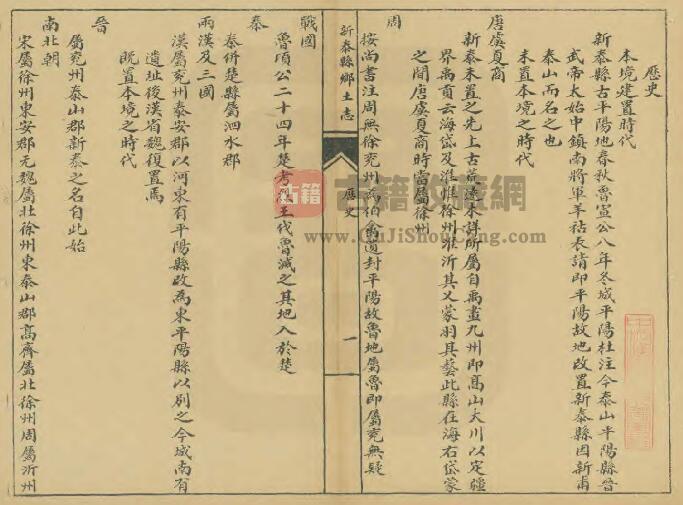 歷史
本境建置時代
新泰縣古平陽地春秋魯宣公八年冬城平陽杜注今泰山平陽縣晉
武帝太始中鎮南將軍羊祜表請即平陽故地改置新泰縣因新甫
泰山而名之也
未置本境之時代
唐虞夏商
新泰未置之先上古荒遠未詳所屬自禹畫九州即高山大川以定疆
界禹貢云海岱及淮惟徐州淮沂其乂蒙羽其藝此縣在海右岱蒙
之間唐虞夏商時當屬徐州
周
按尚書注周無徐兗州為伯禽道封平陽故魯地屬魯即屬兗無疑
新泰縣鄉土志
歷史
一
戰國
魯頃公二十四年楚考烈王伐魯滅之其地入於楚
秦
秦併楚縣屬泗水郡
兩漢及三國
漢屬兗州泰安郡以河東有平陽縣改為東平陽縣以別之今城南有
遺址後漢省魏復置焉
既置本境之時代
晉
屬兗州泰山郡新泰之名自此始
南北朝
宋屬徐州東安郡元魏屬北徐州東泰山郡高齊屬北徐州周屬沂州
古籍 古籍收藏網
www.GuJiShouCang.com